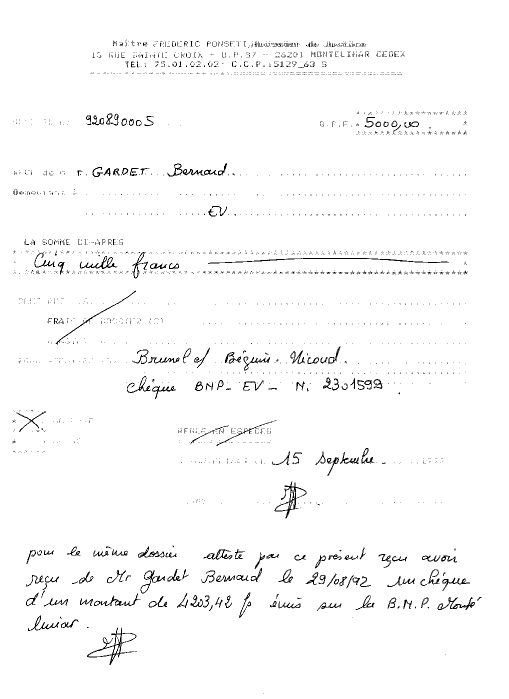 Maître FREDERIC PONSETI, Huissier de Justice
15 RUE SAINTE CROIX - B.P.37 - 26201 MONTELIMAR CEDEX
TEL: 75.01.02.02 C.C.P.:5129_63 S
920890005
B.P.F. * 5000,00 . *
Reçu de M r. GARDET Bernard
Demeurant à
EV
LA SOMME CI-APRES
Cinq mille francs
FRAIS DE DOSSIER (C)
Brunel c/ Béguin - Nicoud.
chèque BNP - EV - N. 2301599
REGLE EN ESPECES
15 Septembre
pour le même dossier atteste par ce présent reçu avoir
reçu de Mr Gardet Bernard le 29/08/92 un chèque
d'un montant de 4203,42 f émis sur la B.N.P. Monté
limar.